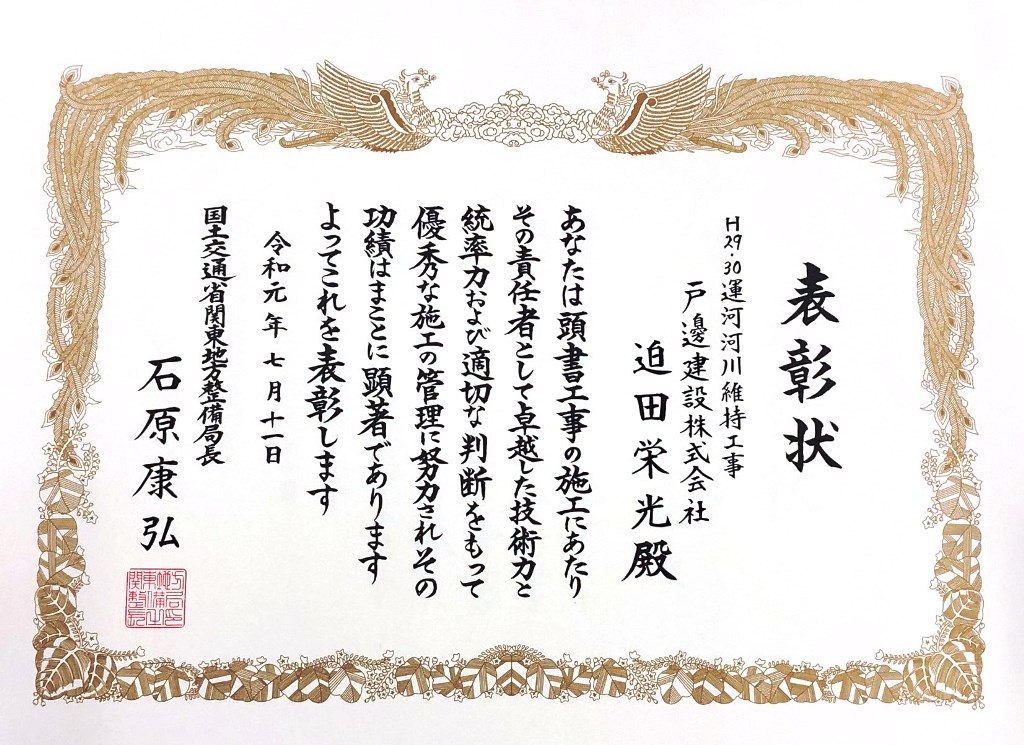 表彰状
H29・30運河河川維持工事
戸邊建設株式会社
迫田栄光殿
あなたは頭書工事の施工にあたり
その責任者として卓越した技術力と
統率力および適切な判断をもって
優秀な施工の管理に努力されその
功績はまことに顕著であります
よってこれを表彰します
令和元年七月十一日
国土交通省関東地方整備局長
石原康弘